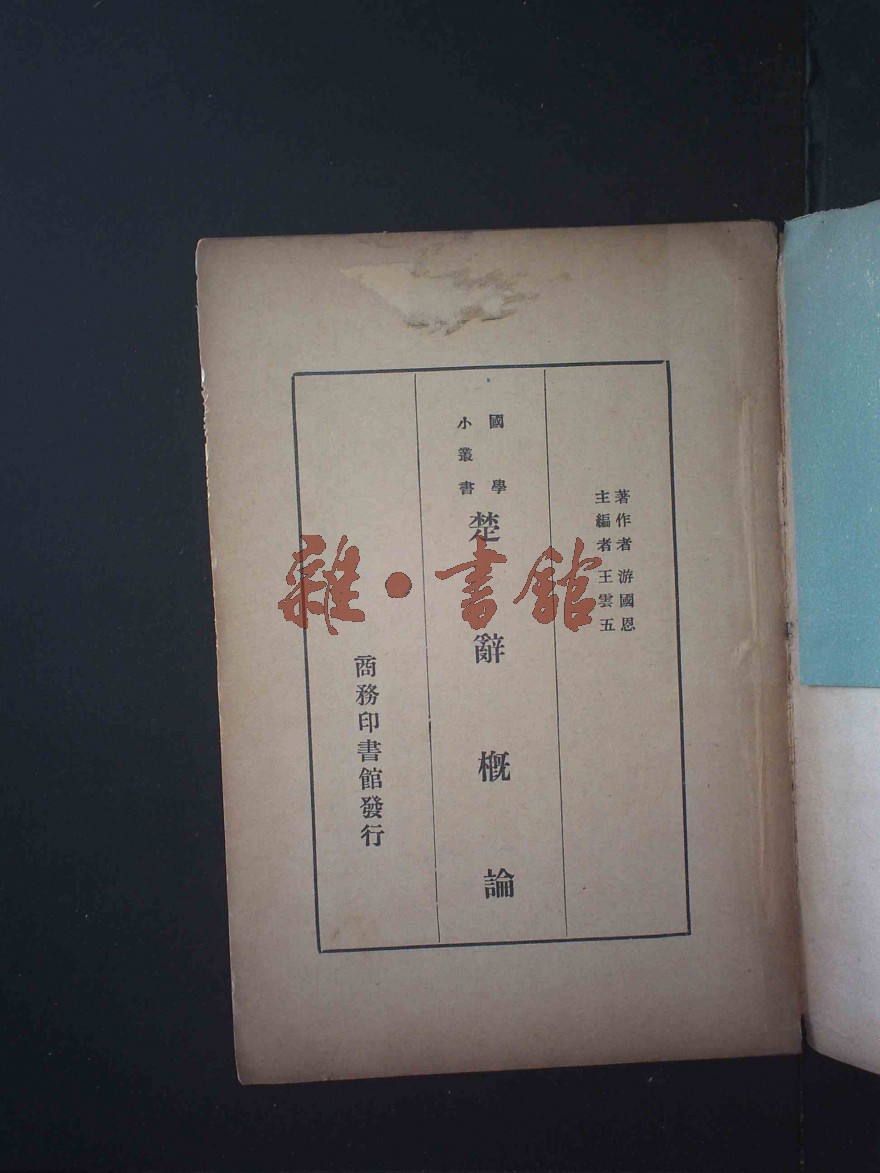 著作者 游國恩
主編者 王雲五
國學
小叢書
楚辭概論
商務印書館發行
雜·書館